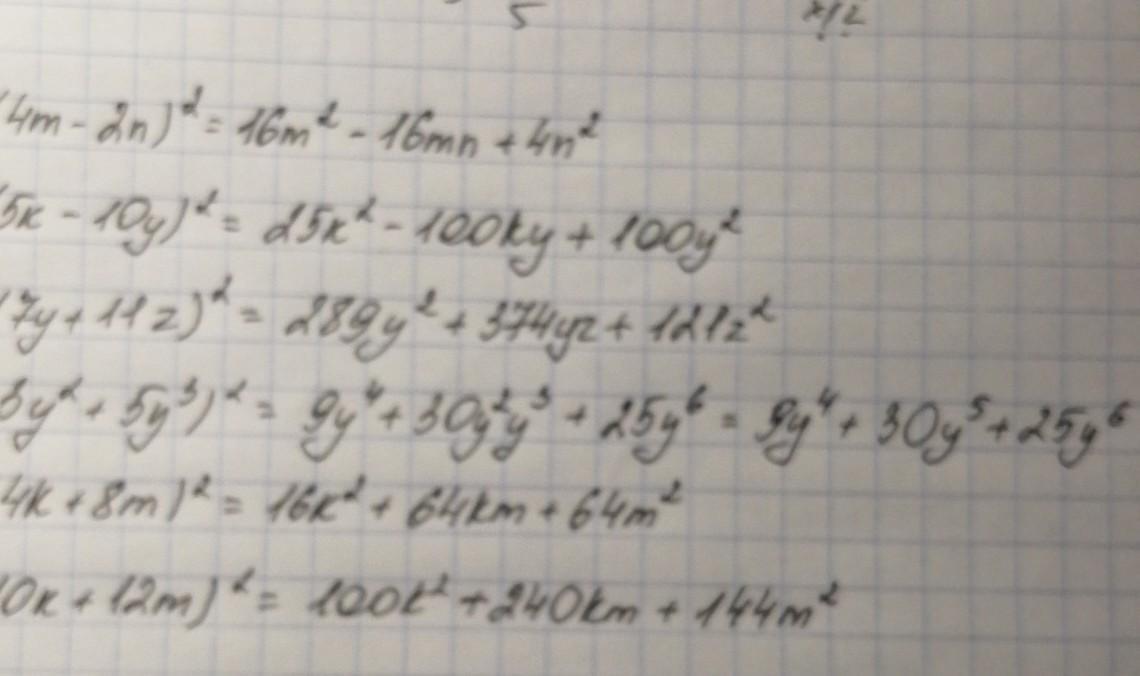 5
(4m - 2n)² = 16m² - 16mn + 4n²
(5k - 10y)² = 25k² - 100ky + 100y²
7y + 11z)² = 289y² + 374yz + 121z²
3y² + 5y³)² = 9y⁴ + 30y²y³ + 25y⁶ = 9y⁴ + 30y⁵ + 25y⁶
4k + 8m)² = 16k² + 64km + 64m²
0k + 12m)² = 100k² + 240km + 144m²